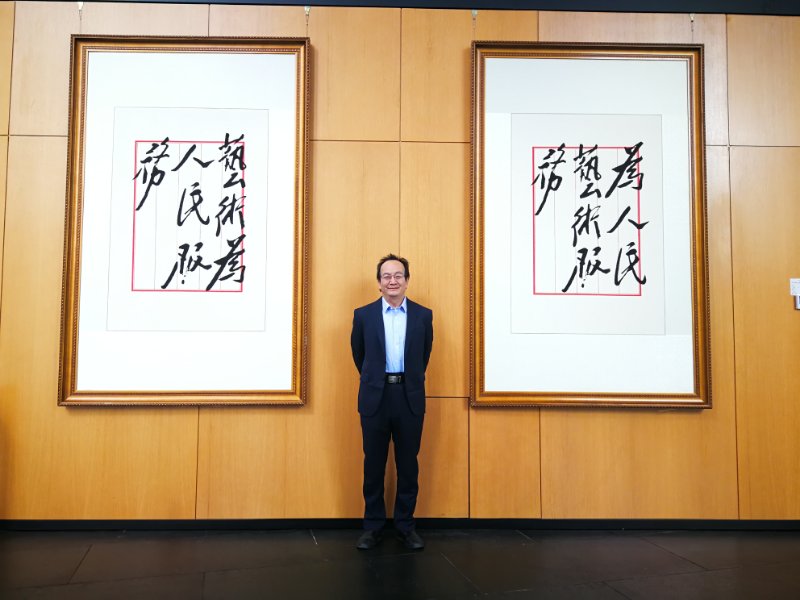 藝術為
人民服
務
為人民
藝術服
務